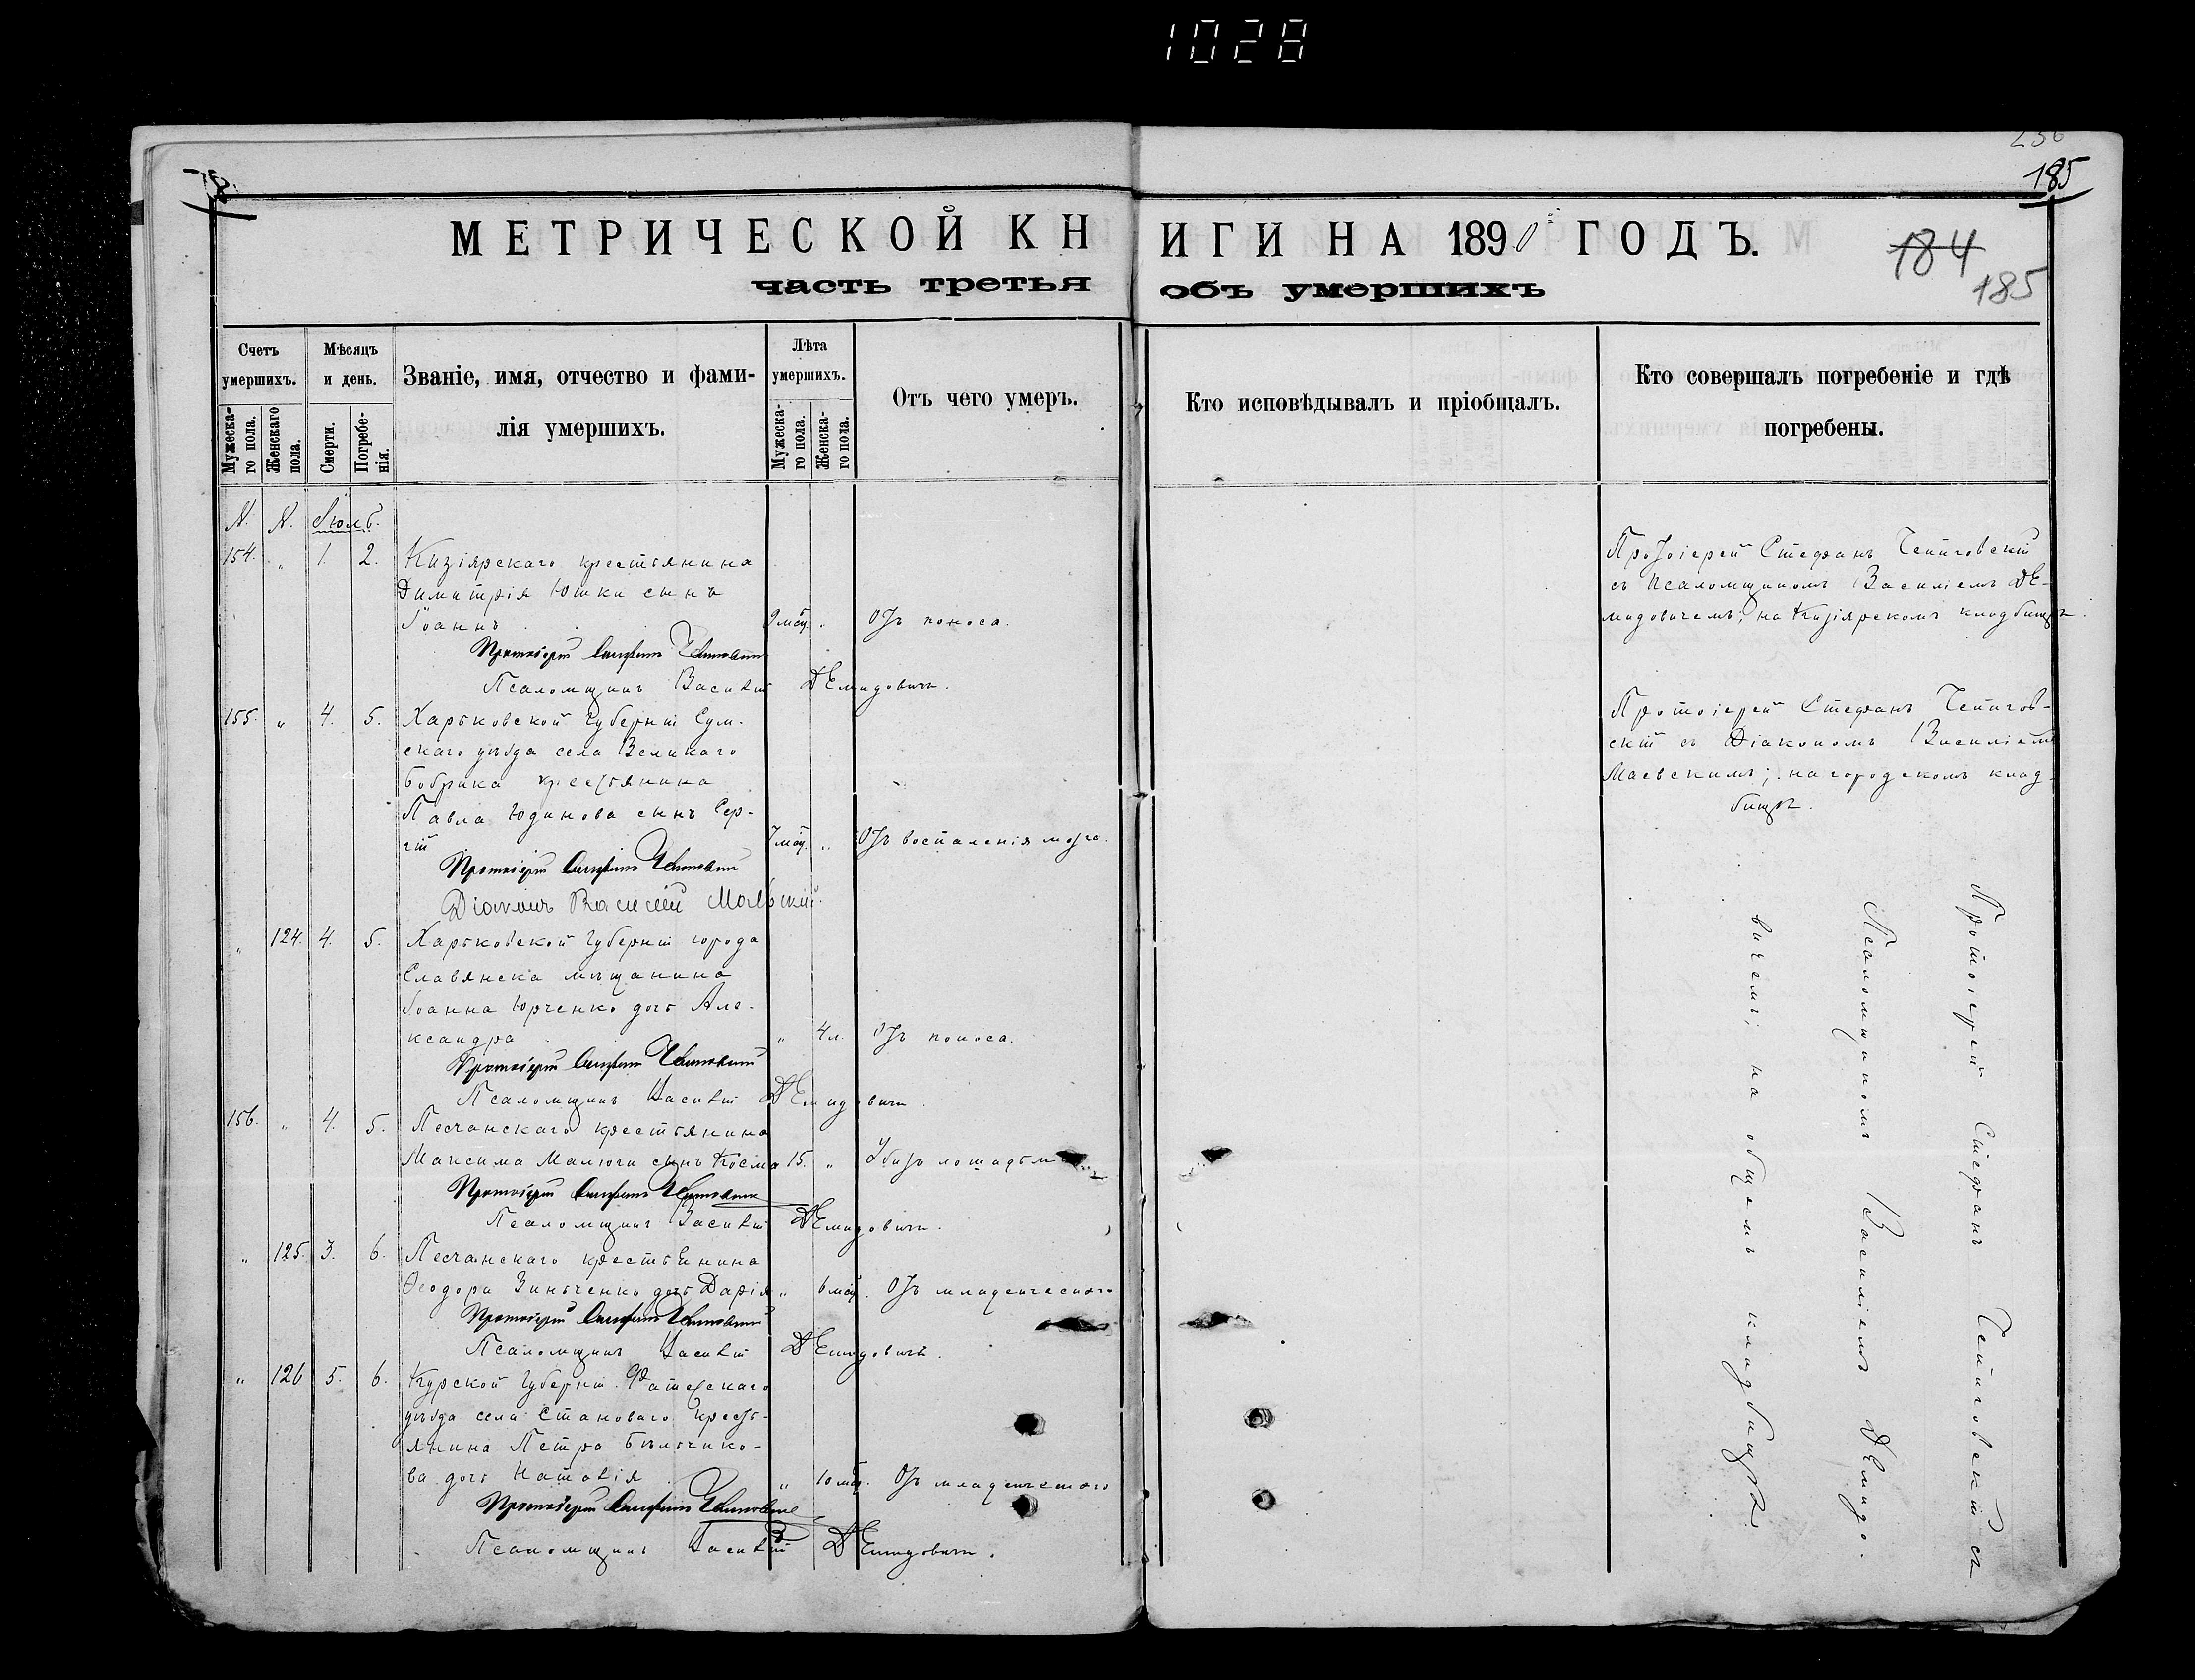 1028
185
МЕТРИЧЕСКОЙ КНИГИ НА 1890 ГОДЪ.
184
185
часть третья объ умершихъ
Счетъ умершихъ.
Мужескаго пола.
Женскаго пола.
Мѣсяцъ и день.
Смерти.
Погребенія.
Званіе, имя, отчество и фамилія умершихъ.
Лѣта умершихъ.
Мужескаго пола.
Женскаго пола.
Отъ чего умеръ.
Кто исповѣдывалъ и пріобщалъ.
Кто совершалъ погребеніе и гдѣ погребены.
N. N. Іюль.
154. " 1. 2. Кизіярскаго крестьянина
Димитрія Юшки сынъ
Іоаннъ 9 мѣс. " Отъ поноса.
Протоіерей Стефанъ
Псаломщикъ Василій Демидовичъ.
Протоіерей Стефанъ
съ псаломщикомъ Василіемъ Де-
мидовичемъ; на Кизіярскомъ кладбищѣ.
155. " 4. 5. Харьковской губерніи Сум-
скаго уѣзда села Великаго
Бобрика крестьянина
Павла Юдинова сынъ Сер-
гій 7 мѣс. " Отъ воспаленія мозга.
Протоіерей Стефанъ
Діаконъ Василій Маевскій.
Протоіерей Стефанъ
скій съ Діакономъ Василіемъ
Маевскимъ; на городскомъ клад-
бищѣ.
" 124. 4. 5. Харьковской губерніи города
Славянска мѣщанина
Іоанна Юрченко дочь Але-
ксандра " 4 л. Отъ поноса.
Протоіерей Стефанъ
Псаломщикъ Василій Демидовичъ.
156. " 4. 5. Песчанскаго крестьянина
Максима Малюги сынъ Косма 15. " Убитъ лошадьми
Протоіерей Стефанъ
Псаломщикъ Василій Демидовичъ.
" 125. 3. 6. Песчанскаго крестьянина
Ѳеодора Зинченко дочь Дарія " 6 мѣс. Отъ младенческаго
Протоіерей Стефанъ
Псаломщикъ Василій Демидовичъ.
" 126 5. 6. Курской губерніи Фатежскаго
уѣзда села Становаго крестъ-
янина Петра
ва дочь Наталія " 10 мѣс. Отъ младенческаго
Протоіерей Стефанъ
Псаломщикъ Василій Демидовичъ.
Протоіерей Стефанъ съ
Псаломщикомъ Василіемъ Демидо-
вичемъ; на общемъ кладбищѣ